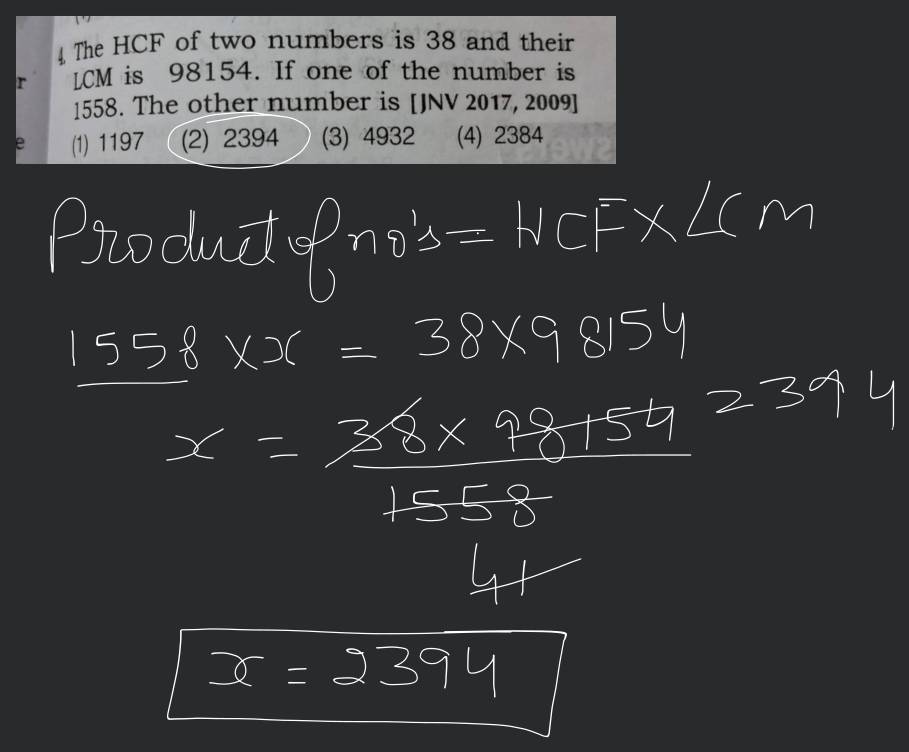 4. The HCF of two numbers is 38 and their
LCM is 98154. If one of the number is
1558. The other number is [JNV 2017, 2009]
(1) 1197 (2) 2394 (3) 4932 (4) 2384
Product of no's = HCF × LCM
1558 × x = 38 × 98154
x = 38 × 98154 2394
1558
41
x = 2394